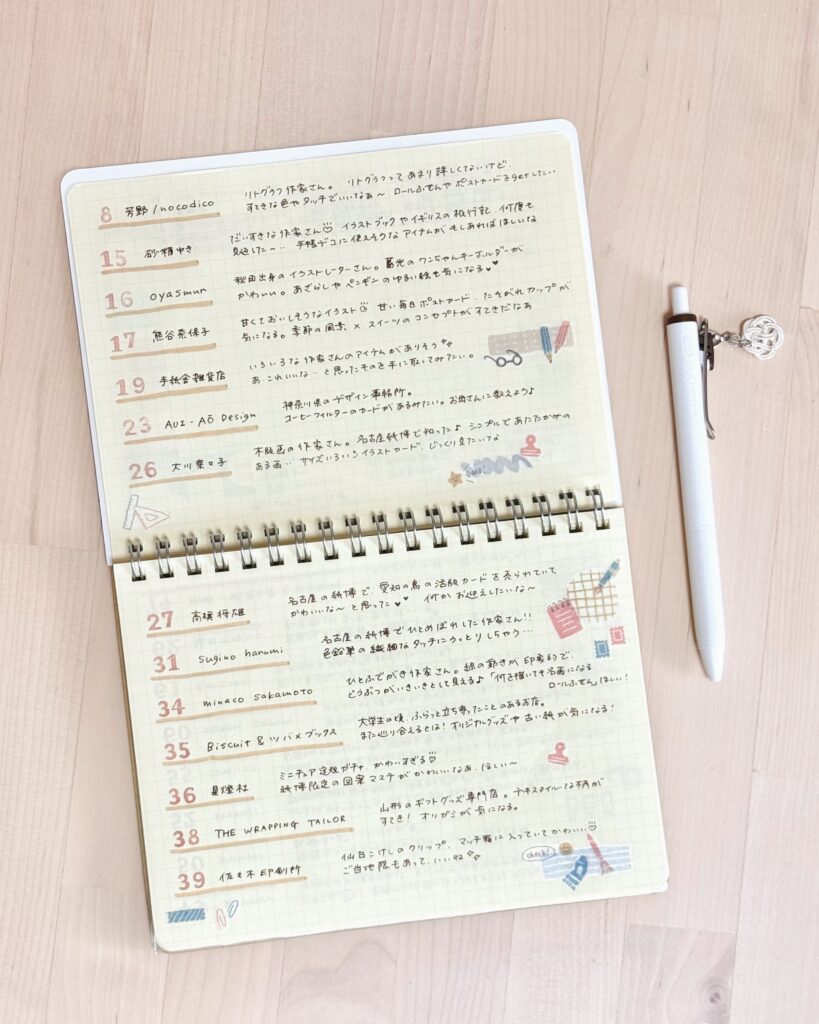 8 芳野/nocodico
リトグラフ作家さん。 リトグラフってあまり詳しくないけど、
すてきな色やタッチでいいなぁ〜 ロールふせんやポストカードをgetしたい
15 砂糖ゆき
だいすきな作家さん♡ イラストブックやイギリスの旅行記、何度も
見返した〜‥ 手帳デコに使えそうなアイテムがもしあればほしいな
16 oyasmur
秋田出身のイラストレーターさん。蓄光のワンちゃんキーホルダーが
かわいい。あざらしやペンギンのゆるい絵も気になる♥♥
17 熊谷奈保子
甘くておいしそうなイラスト 甘い毎日ポストカード、たそがれカップが
気になる。季節の風景 × スイーツのコンセプトがすてきだなあ
19 手紙舎雑貨店
いろいろな作家さんのアイテムがありそう
あ、これいいな‥と思ったものを手に取ってみたい。
23 AUI-AŌ Design
神奈川県のデザイン事務所。
コーヒーフィルターのカードがあるみたい。お母さんに教えよう♪
26 大川菜々子
木版画の作家さん。名古屋紙博で知った♪ シンプルであたたかみの
ある画‥ サイズいろいろイラストカード、じっくり見たいな
27 髙旗将雄
名古屋の紙博で、愛知の鳥の活版カードを売られていて
かわいいな〜と思った♥♥ 何かお迎えしたいな〜
31 sugino harumi
名古屋の紙博でひとめぼれした作家さん!!
色鉛筆の繊細なタッチにうっとりしちゃう…
34 minaco sakamoto
ひとふでがき作家さん。線の動きが印象的で、
どうぶつがいきいきとして見える♪「何を描いても名画になる
ロールふせん」ほしい!
35 Biscuit & ツバメブックス
大学生の頃、ふらっと立ち寄ったことのあるお店。
また巡り会えるとは! オリジナルグッズや古い紙が気になる!
36 星燈社
ミニチュア定規ガチャ、かわいすぎる♡
紙博限定の図案マステがかわいいなあ、ほしい〜
38 THE WRAPPING TAILOR
山形のギフトグッズ専門店。テキスタイルな柄が
すてき! オリガミが気になる。
39 佐々木印刷所
仙台こけしのクリップ、マッチ箱に入っていてかわいい♡
ご当地版もあって、いいね
check!